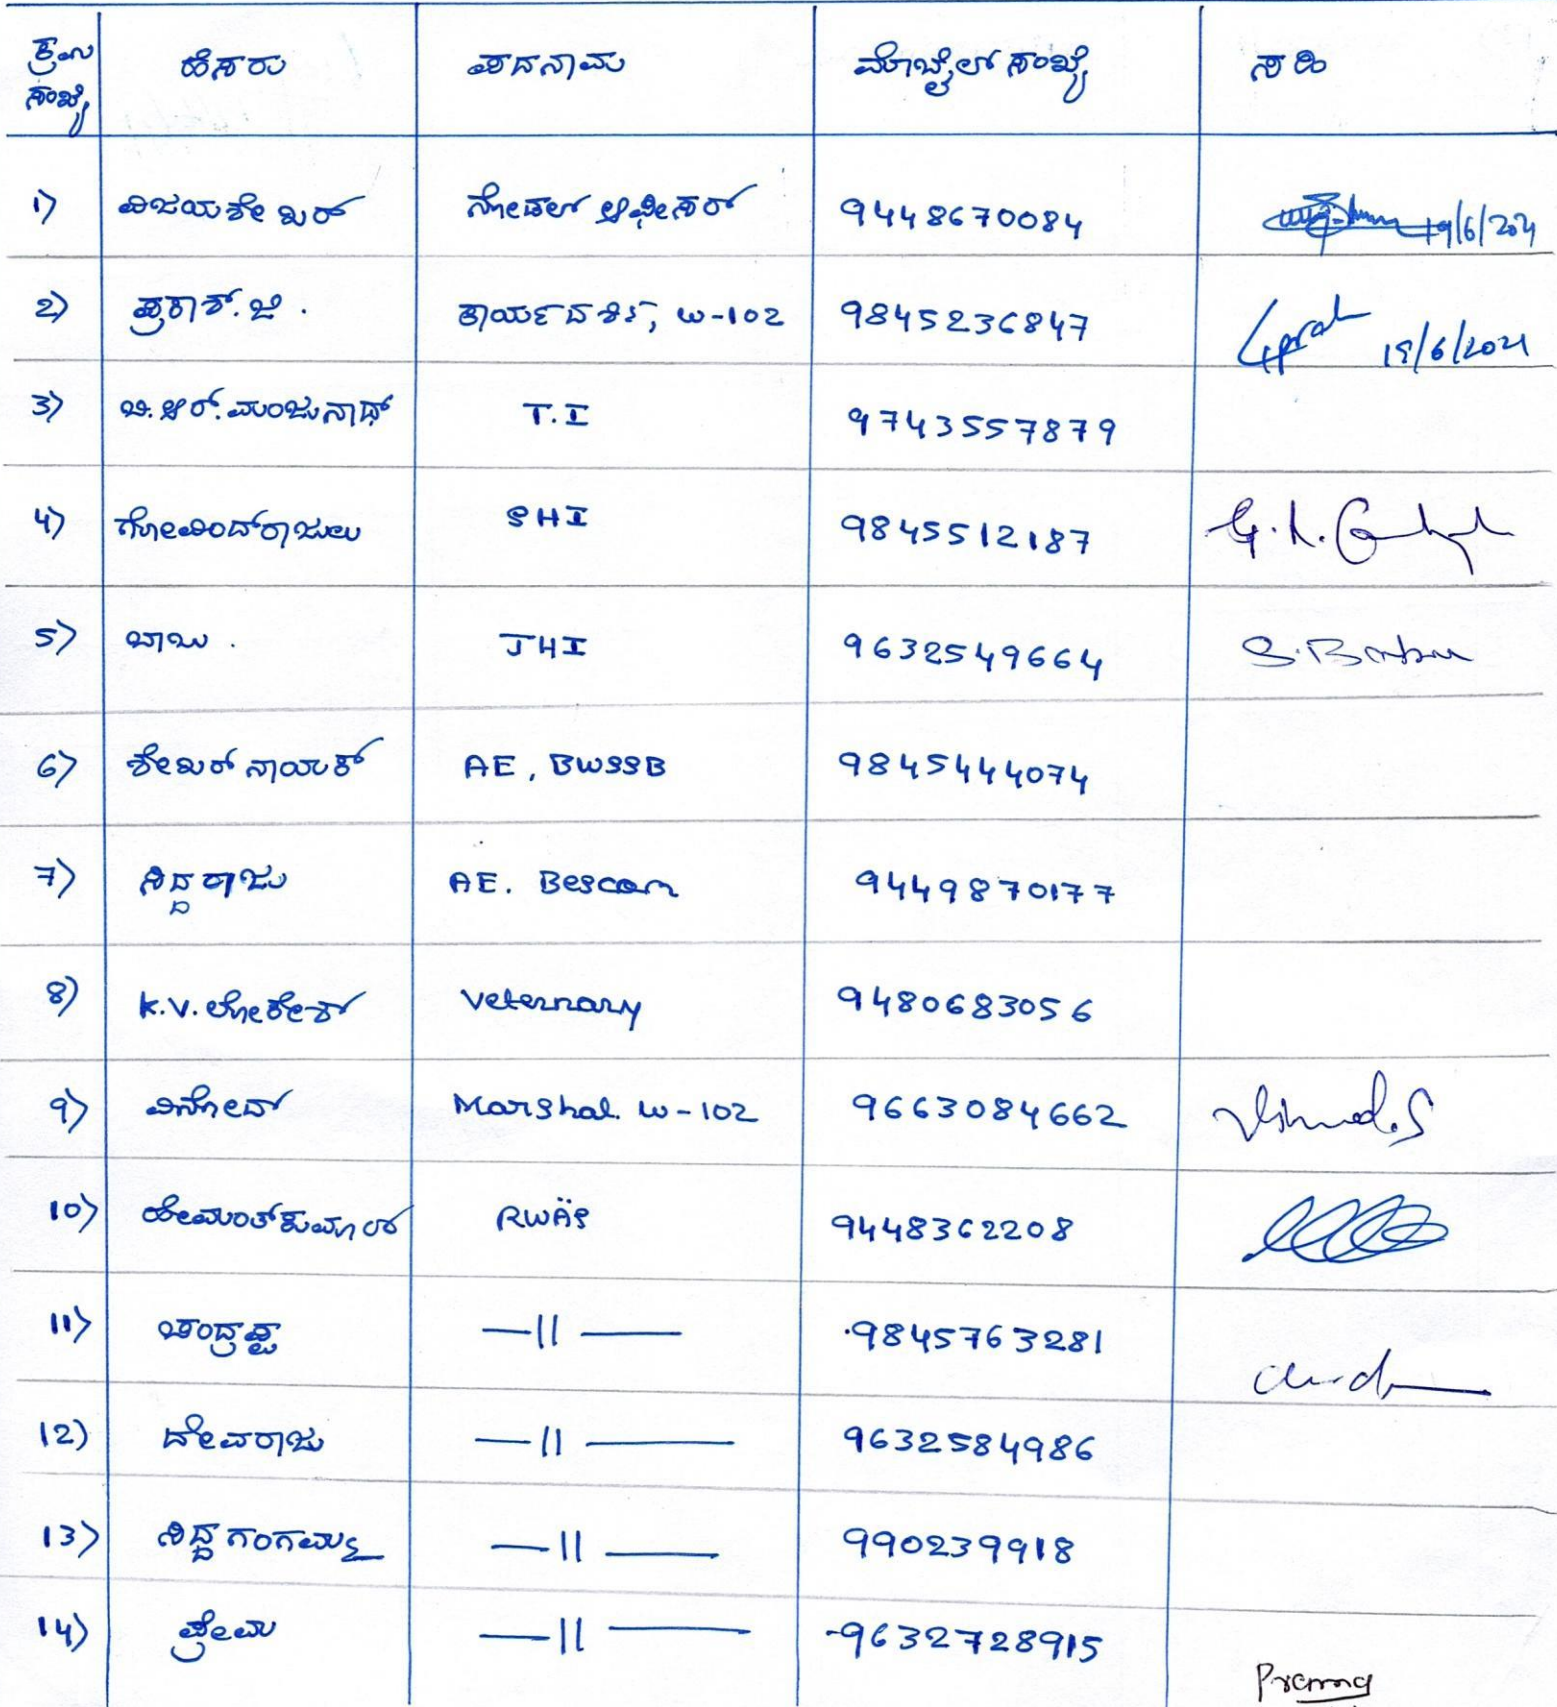 ಕ್ರಮ ಸಂಖ್ಯೆ ಹೆಸರು ಪದನಾಮ ಮೊಬೈಲ್ ಸಂಖ್ಯೆ ಸಹಿ
1) ವಿಜಯಶೇಖರ್ ನೋಡಲ್ ಆಫೀಸರ್ 9448670084 19/6/2021
2) ಪ್ರಕಾಶ್.ಜಿ. ಕಾರ್ಯದರ್ಶಿ, W-102 9845236847 19/6/2021
3) ಬಿ.ಆರ್.ಮಂಜುನಾಥ್ T.I 9743557879
4) ಗೋವಿಂದ್‌ರಾಜುಲು SHI 9845512187
5) ಬಾಬು. JHI 9632549664 S.Babu
6) ಶೇಖರ್ ನಾಯಕ್ AE, BWSSB 9845444074
7) ಸಿದ್ದರಾಜು AE. Bescom 9449870177
8) K.V. ಲೋಕೇಶ್ Veternary 9480683056
9) ವಿನೋದ್ Marshal. W-102 9663084662 Vinod.S
10) ಹೇಮಂತ್‌ಕುಮಾರ್ RWAs 9448362208
11) ಚಂದ್ರಪ್ಪ —||— 9845763281
12) ದೇವರಾಜು —||— 9632584986
13) ಸಿದ್ದಗಂಗಮ್ಮ —||— 990239918
14) ಪ್ರೇಮ —||— 9632728915 Prema